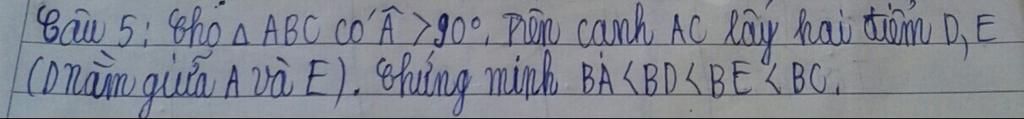 Câu 5: Cho △ ABC có Â > 90°, trên cạnh AC lấy hai điểm D, E
(D nằm giữa A và E). Chứng minh BA < BD < BE < BC.